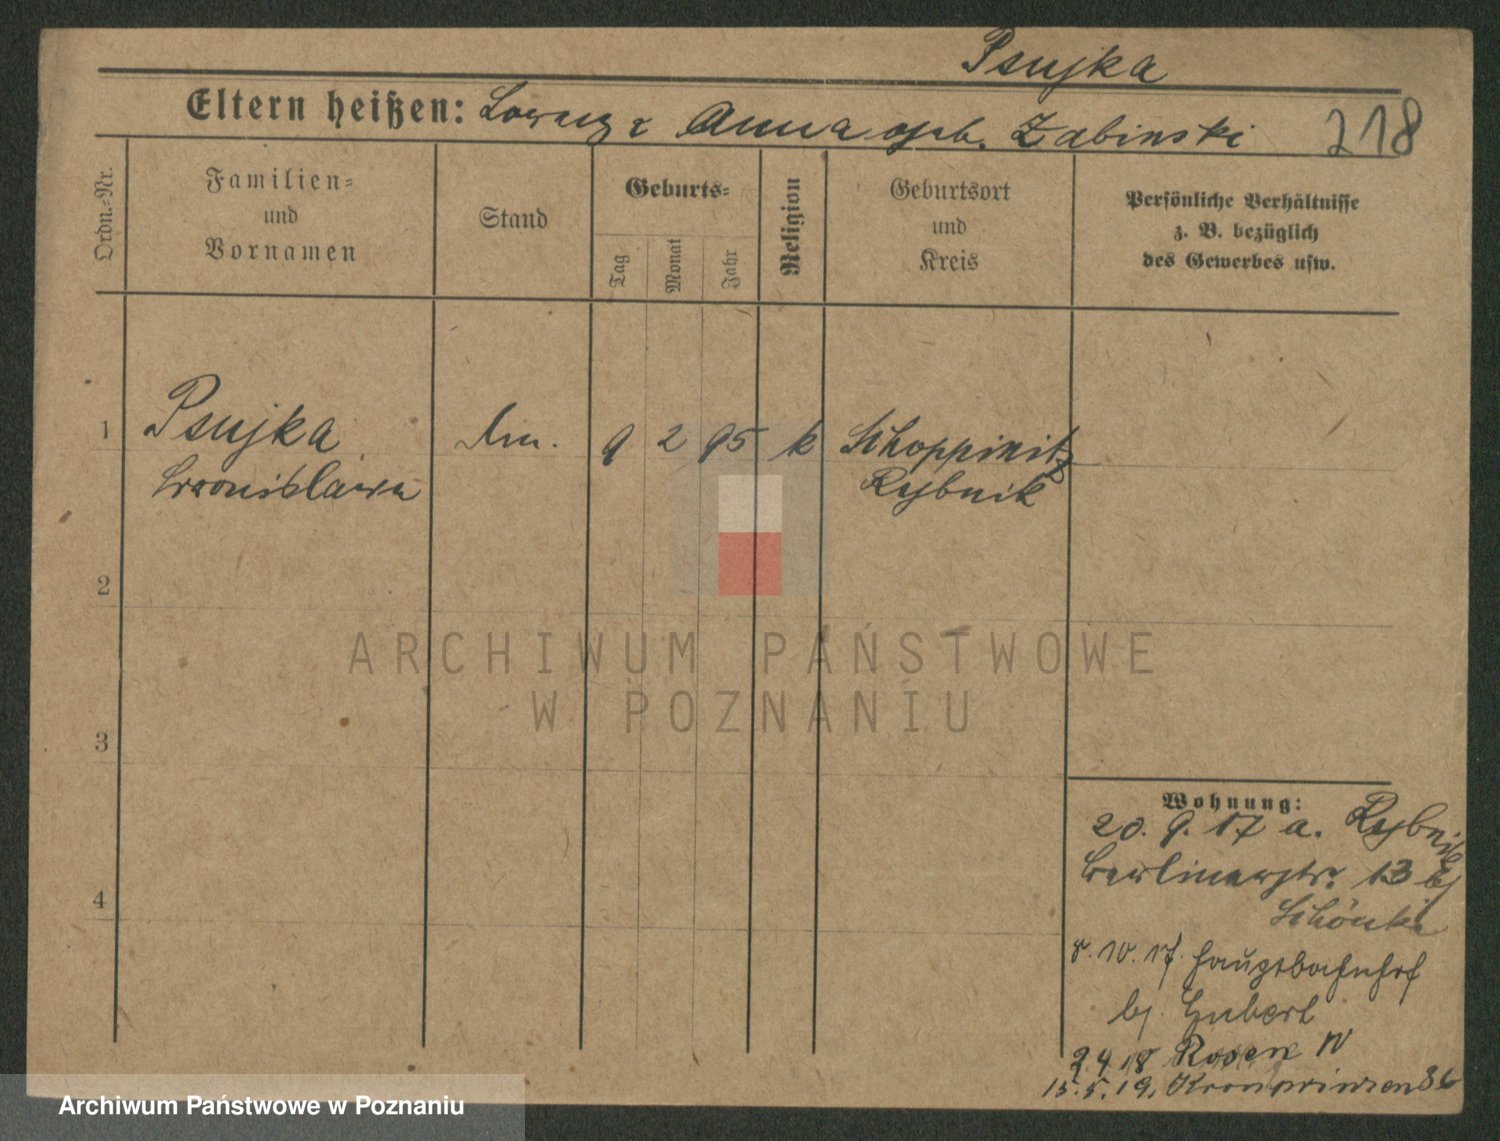 Psujka
Eltern heißen: Lorenz & Anna geb. Zabinski 218
Ordn.-Nr.
Familien-
und
Vornamen
Stand
Geburts-
Tag
Monat
Jahr
Religion
Geburtsort
und
Kreis
Persönliche Verhältnisse
z. B. bezüglich
des Gewerbes usw.
1 Psujka 9 2 95 k Schoppinitz
Bronislawa Rybnik
2
3
4
Wohnung:
20. 9. 17 a. Rybnik
Berlinerstr. 13 bj
8. 10. 17. Hauptbahnhof
bj. Hubert
2 4 18 Posen IV
15. 5. 19. Kronprinzen 36
ARCHIWUM PAŃSTWOWE
W POZNANIU
Archiwum Państwowe w Poznaniu